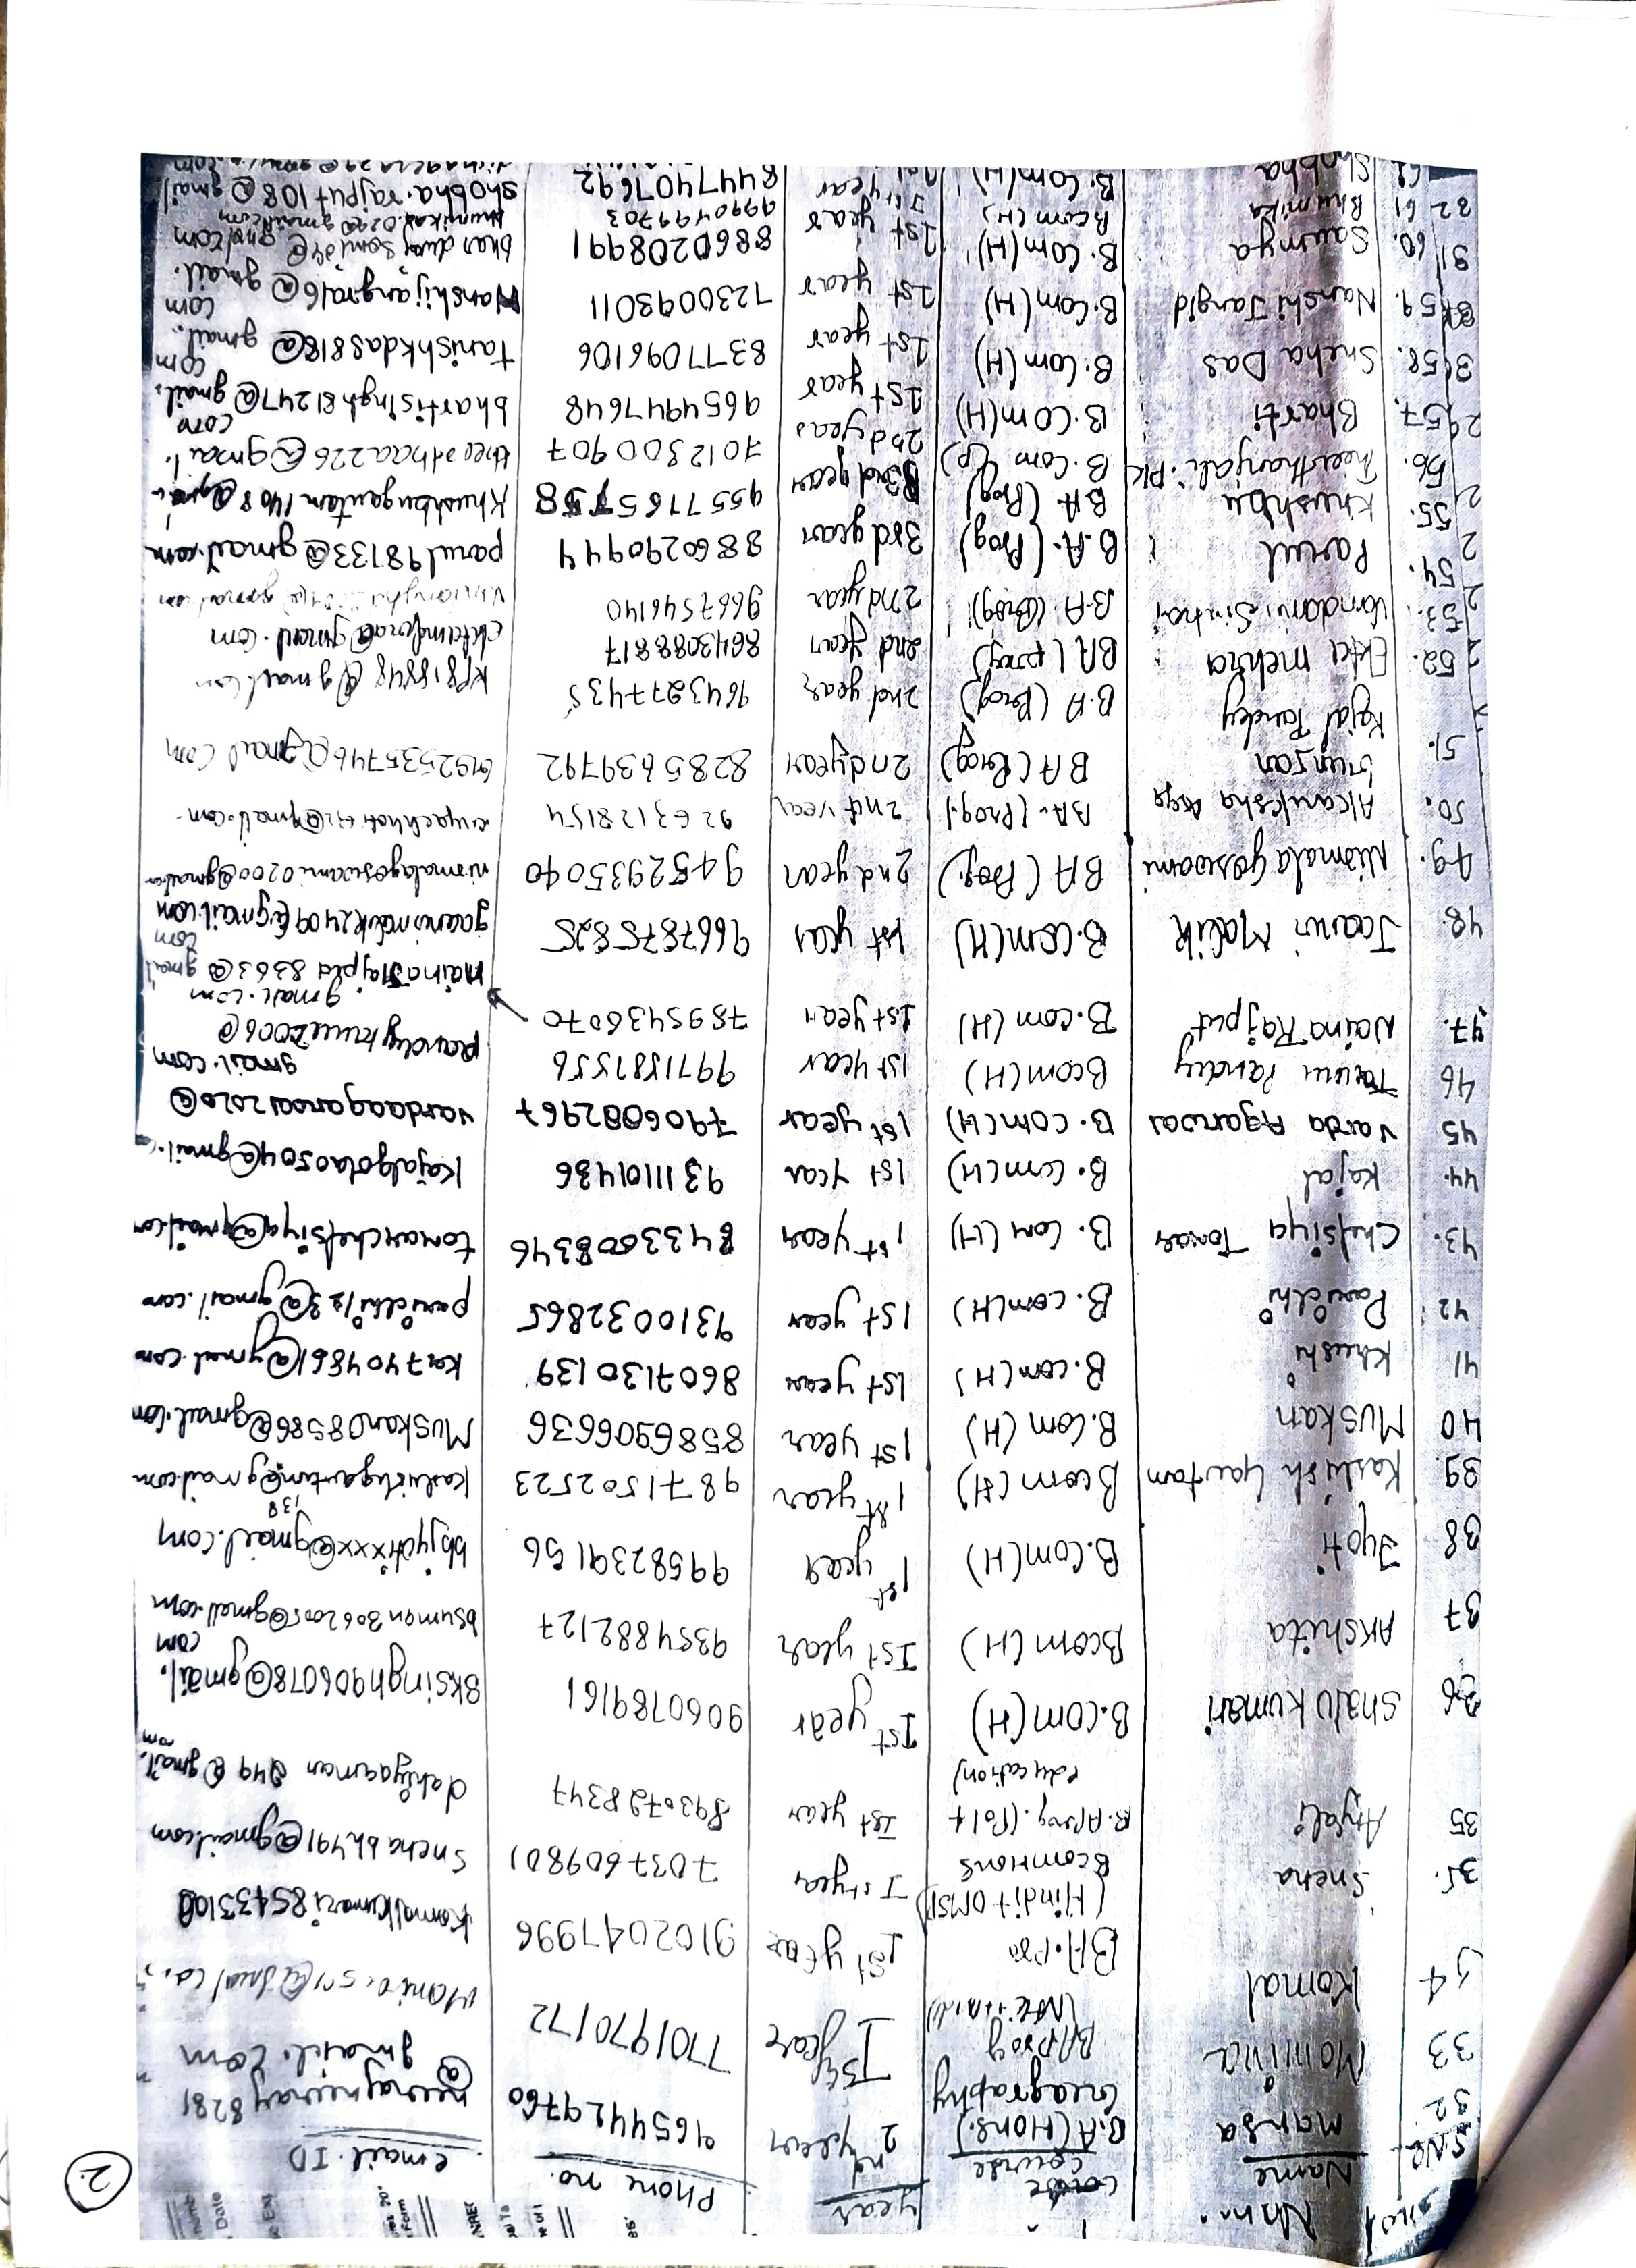 2.
S.No. Name Course year Phone no. email. ID
32. Mansa B.A(Hons.) Geography 2nd year 9654429760 neerajneeraj48281@gmail.com
33 Monika BAProg I year 7701970172
34 Komal BA.Pro (Hindi+OMSP) 1st year 9102047996 Komalkumari8543310
35. Sneha Bcom Hons Ist year 7037609801 Snehabh491@gmail.com
35 Anjali B.A Prog. (Pol + education) Ist year 8930728347 dahiyaaman249@gmail.com
36 Shalu kumari B.COM(H) Ist year 9060789161 sksingh906078@gmail.com
37 Akshita Bcom(H) Ist year 9354882127 bsuman3062005@gmail.com
38 Jyoti B.Com(H) 1st year 9958239156 bbjyotixxx@gmail.com
39. Kashish Gautam Bcom(H) 1st year 9871502523 Kashishgautam138@gmail.com
40 Muskan B.Com (H) 1st year 8586906636 Muskan08586@gmail.com
41 Khushi B.com(H) 1st year 8607130139 ka7404861@gmail.com
42. Paridhi B.com(H) 1st year 9310032865 paridhi123@gmail.com
43. Chelsiya Tomar B.Com(H) 1st year 8433008346 tomarchelsiya@gmail.com
44. Kajal B.Com(H) 1st year 9311101436 Kajalgola0504@gmail.
45 Varda Agarwal B.com(H) 1st year 7906002967 vardaagarwal2020@gmail.com
46 Tannu Pandey Bcom(H) 1st year 9971587556 pandeytannu2006@gmail.com
47. Naina Rajput B.com (H) 1st year 7895436070 nainaRajput8363@gmail.com
48. Jaanvi Malik B.com(H) 1st year 9667875825 jaanvimalik2409@gmail.com
49. Nirmala goswami BA (Prog.) 2nd year 9452935040 nirmalagoswami0200@gmail.com
50. Akanksha BA. (Prog.) 2nd year 9263128154
Gunjan BA (Prog) 2nd year 8285639792
51. Kajal Pandey B.A (Prog) 2nd year 9643277435 kp818848@gmail.com
52. Ekta mehra BA (prog) 2nd year 8643088817 ektamehra@gmail.com
53. Vandani Sinha B.A. (Prog) 2nd year 9667546140
54. Parul B.A. (Prog) 3rd year 8860290944 parul98133@gmail.com
55. Khushbu BA (Prog) 3rd year 9557165758 Khushbugautam1408@gmail
56. Theerthanjali. PK B.Com (P) 2nd year 7012300907 theerthaa226@gmail.com
57. Bharti B.Com(H) 1st year 9654947648 bhartisingh81247@gmail.com
58. Sneha Das B.Com(H) 1st year 8377096106 tanishkdas818@gmail.com
59. Nanshi Jangid B.Com(H) 1st year 7230093011 Nanshijangra16@gmail.
60. Saumya B.Com(H) 1st year 8860208491
61 Bhumika Bcom(H) 1st year 9990499703
62. Shobha B.Com(H) 1st year 8447407692 Shobha.rajput108@gmail